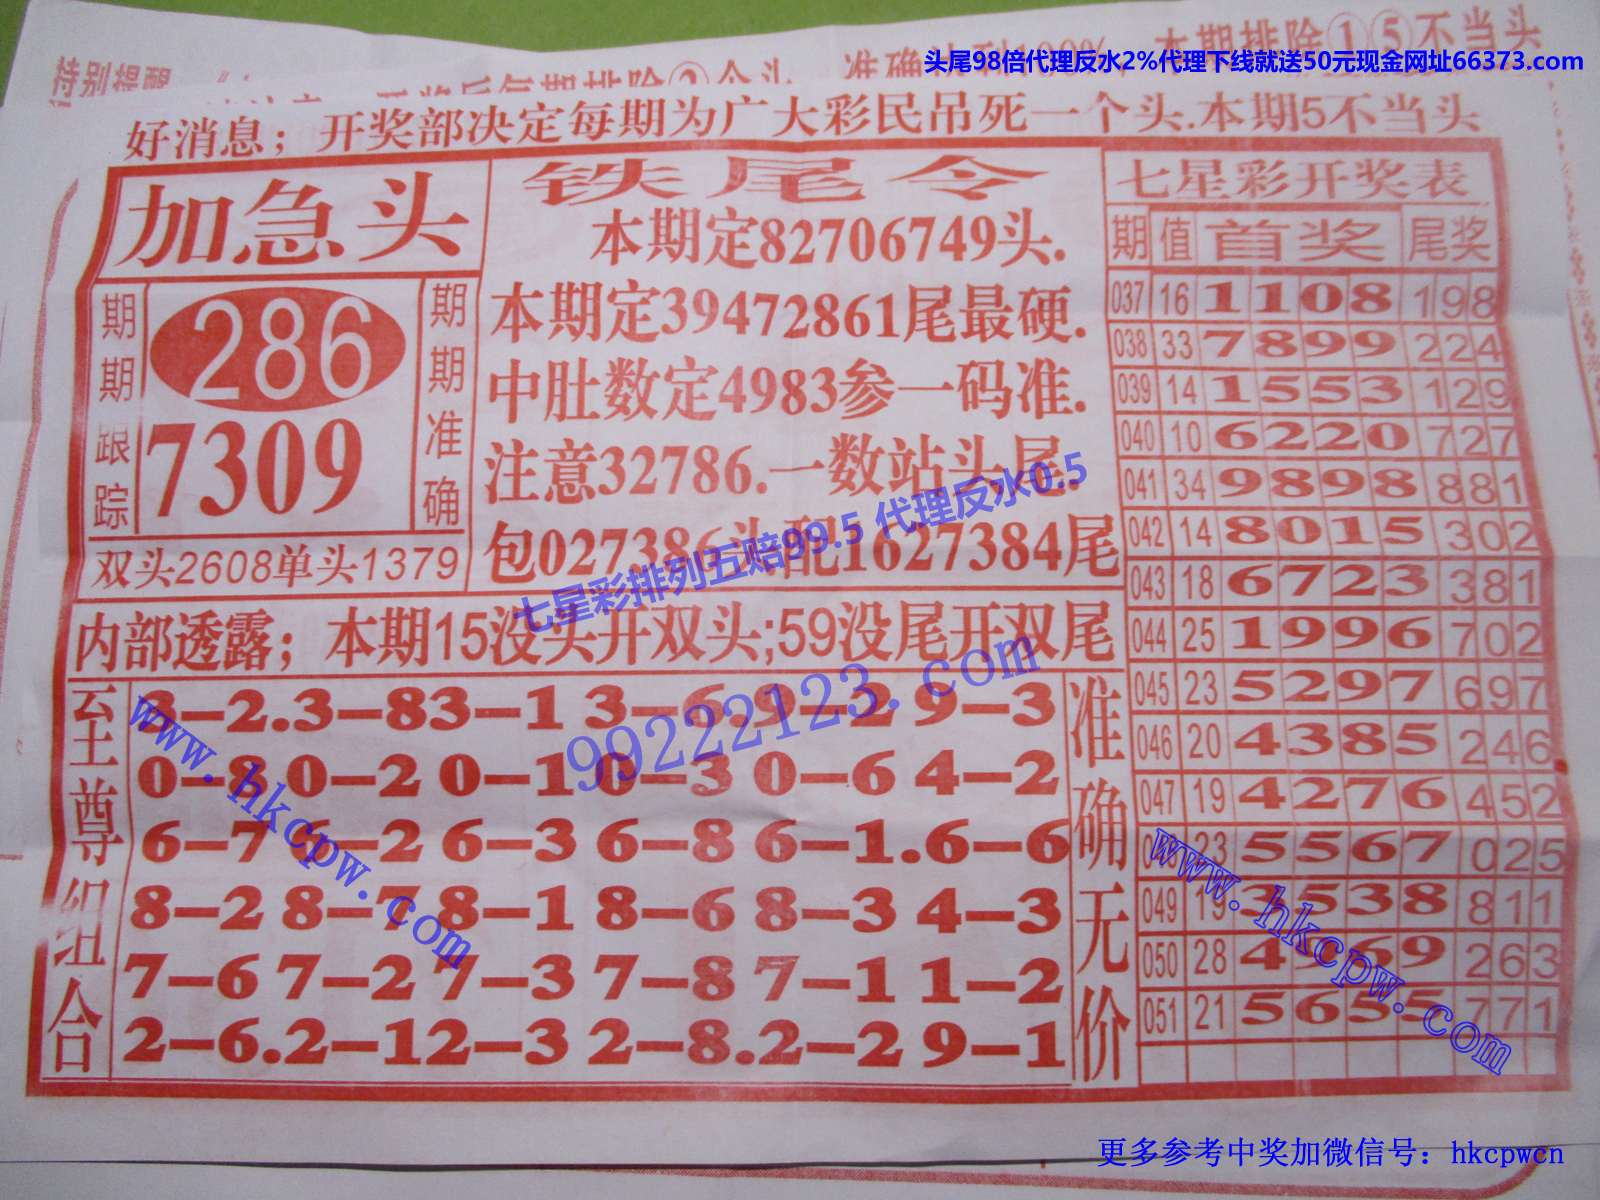 头尾98倍代理反水2%代理下线就送50元现金网址66373.com
特别提醒
本期排除①⑤不当头
好消息；开奖部决定每期为广大彩民吊死一个头.本期5不当头
加急头
期期跟踪
286
7309
期期准确
双头2608单头1379
铁尾令
本期定82706749头.
本期定39472861尾最硬.
中肚数定4983参一码准.
注意32786.一数站头尾.
包027386头配1627384尾
七星彩排列五赔99.5 代理反水0.5
内部透露；本期15没头开双头;59没尾开双尾
99222123.com
至尊组合
8-2.3-83-1 3-6.9-2 9-3
0-8 0-2 0-1 0-3 0-6 4-2
6-7 6-2 6-3 6-8 6-1.6-6
8-2 8-7 8-1 8-6 8-3 4-3
7-6 7-2 7-3 7-8 7-1 1-2
2-6.2-12-3 2-8.2-2 9-1
准确无价
www.hkcpw.com
七星彩开奖表
期 值 首奖 尾奖
037 16 1108 198
038 33 7899 224
039 14 1553 129
040 10 6220 727
041 34 9898 881
042 14 8015 302
043 18 6723 381
044 25 1996 702
045 23 5297 697
046 20 4385 246
047 19 4276 452
23 5567 025
049 19 3538 811
050 28 4 69 263
051 21 5655 771
www.hkcpw.com
更多参考中奖加微信号：hkcpwcn